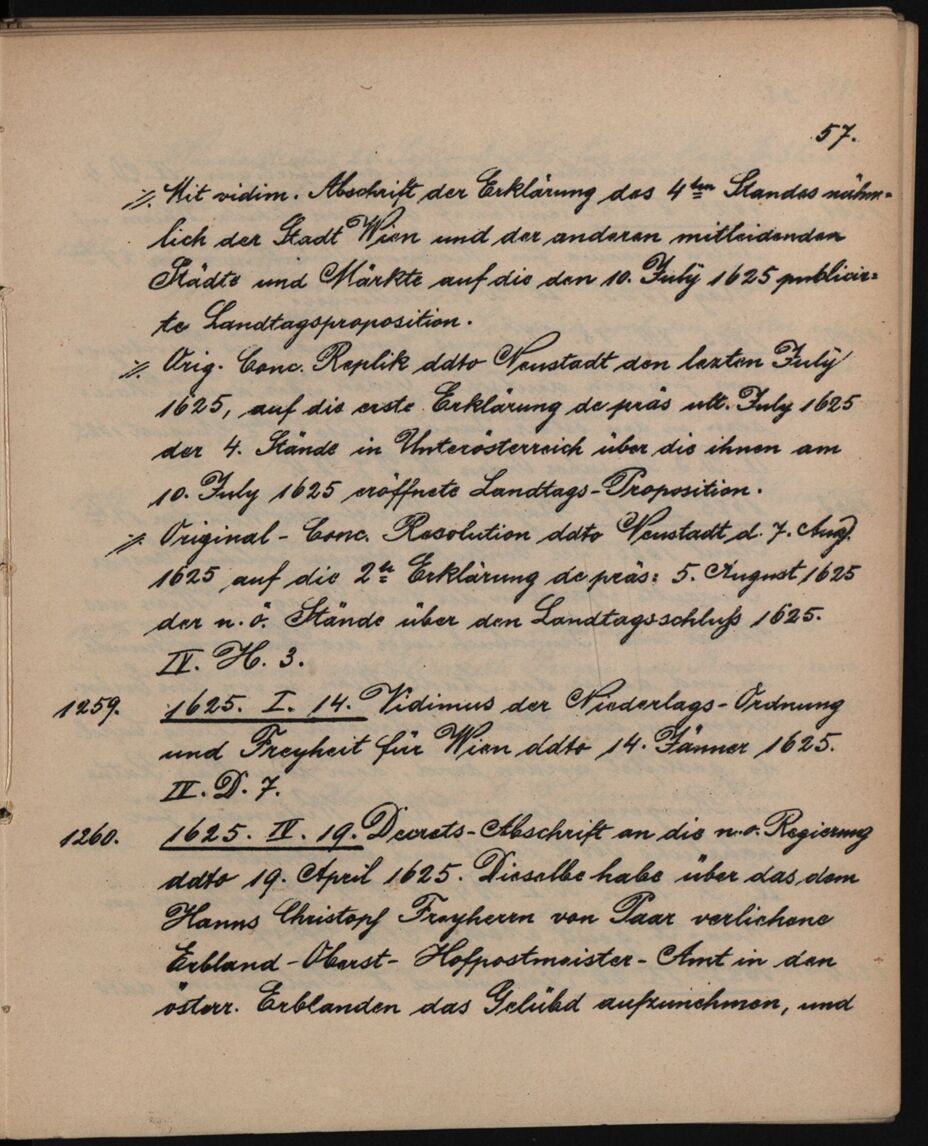 57.
./. Mit vidim. Abschrift der Erklärung des 4ten Standes nähm=
lich der Stadt Wien und der anderen mitleidenden
Städte und Märkte auf die den 10. July 1625 publicir=
te Landtagsproposition.
./. Orig. Conc. Replik ddto Neustadt den lezten July
1625, auf die erste Erklärung de präs ult. July 1625
der 4. Stände in Unterösterreich über die ihnen am
10. July 1625 eröffnete Landtags-Proposition.
./. Original-Conc. Resolution ddto Neustadt d. 7. Aug.
1625 auf die 2te Erklärung de präs: 5. August 1625
der n. ö. Stände über den Landtagsschluß 1625.
IV. H. 3.
1259. 1625. I. 14. Vidimus der Niederlags-Ordnung
und Freyheit für Wien ddto 14. Jänner 1625.
IV. D. 7.
1260. 1625. IV. 19. Decrets-Abschrift an die n. ö. Regierung
ddto 19. April 1625. Dieselbe habe über das dem
Hanns Christopf Freyherrn von Paar verliehene
Erbland-Oberst-Hofpostmeister-Amt in den
österr. Erblanden das Gelübd aufzunehmen, und